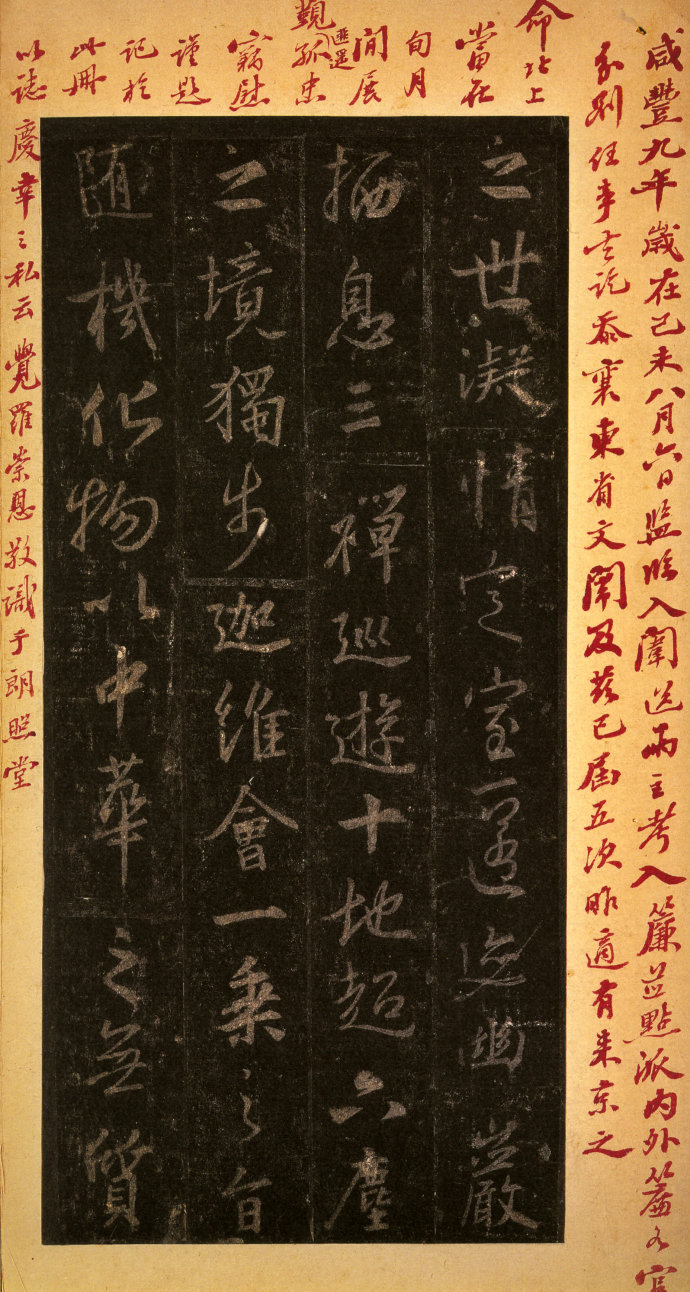 咸豐九年歲在己未八月六日監臨入闈送兩主考入簾並點派內外簾各官
分別任事去訖忝襄東省文闈及茲已屆五次昨適有来京之
命北上
當在
旬月
間展
匪遥
覲孤忠
竊慰
謹題
記於
此冊
以誌慶幸之私云覺羅崇恩敬識于朗照堂
之世凝情定室匿迹幽巖
栖息三禪巡遊十地超六塵
之境獨步迦維會一乘之旨
随機化物以中華之無質